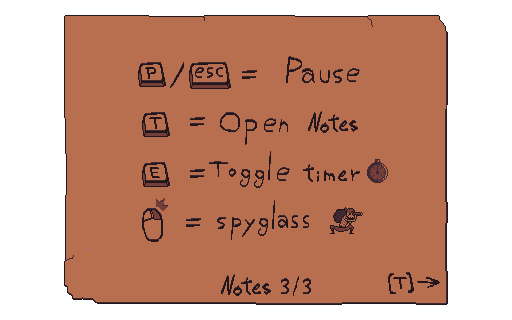 P / esc = Pause
T = Open Notes
E = Toggle timer
= spyglass
Notes 3/3
[T]→